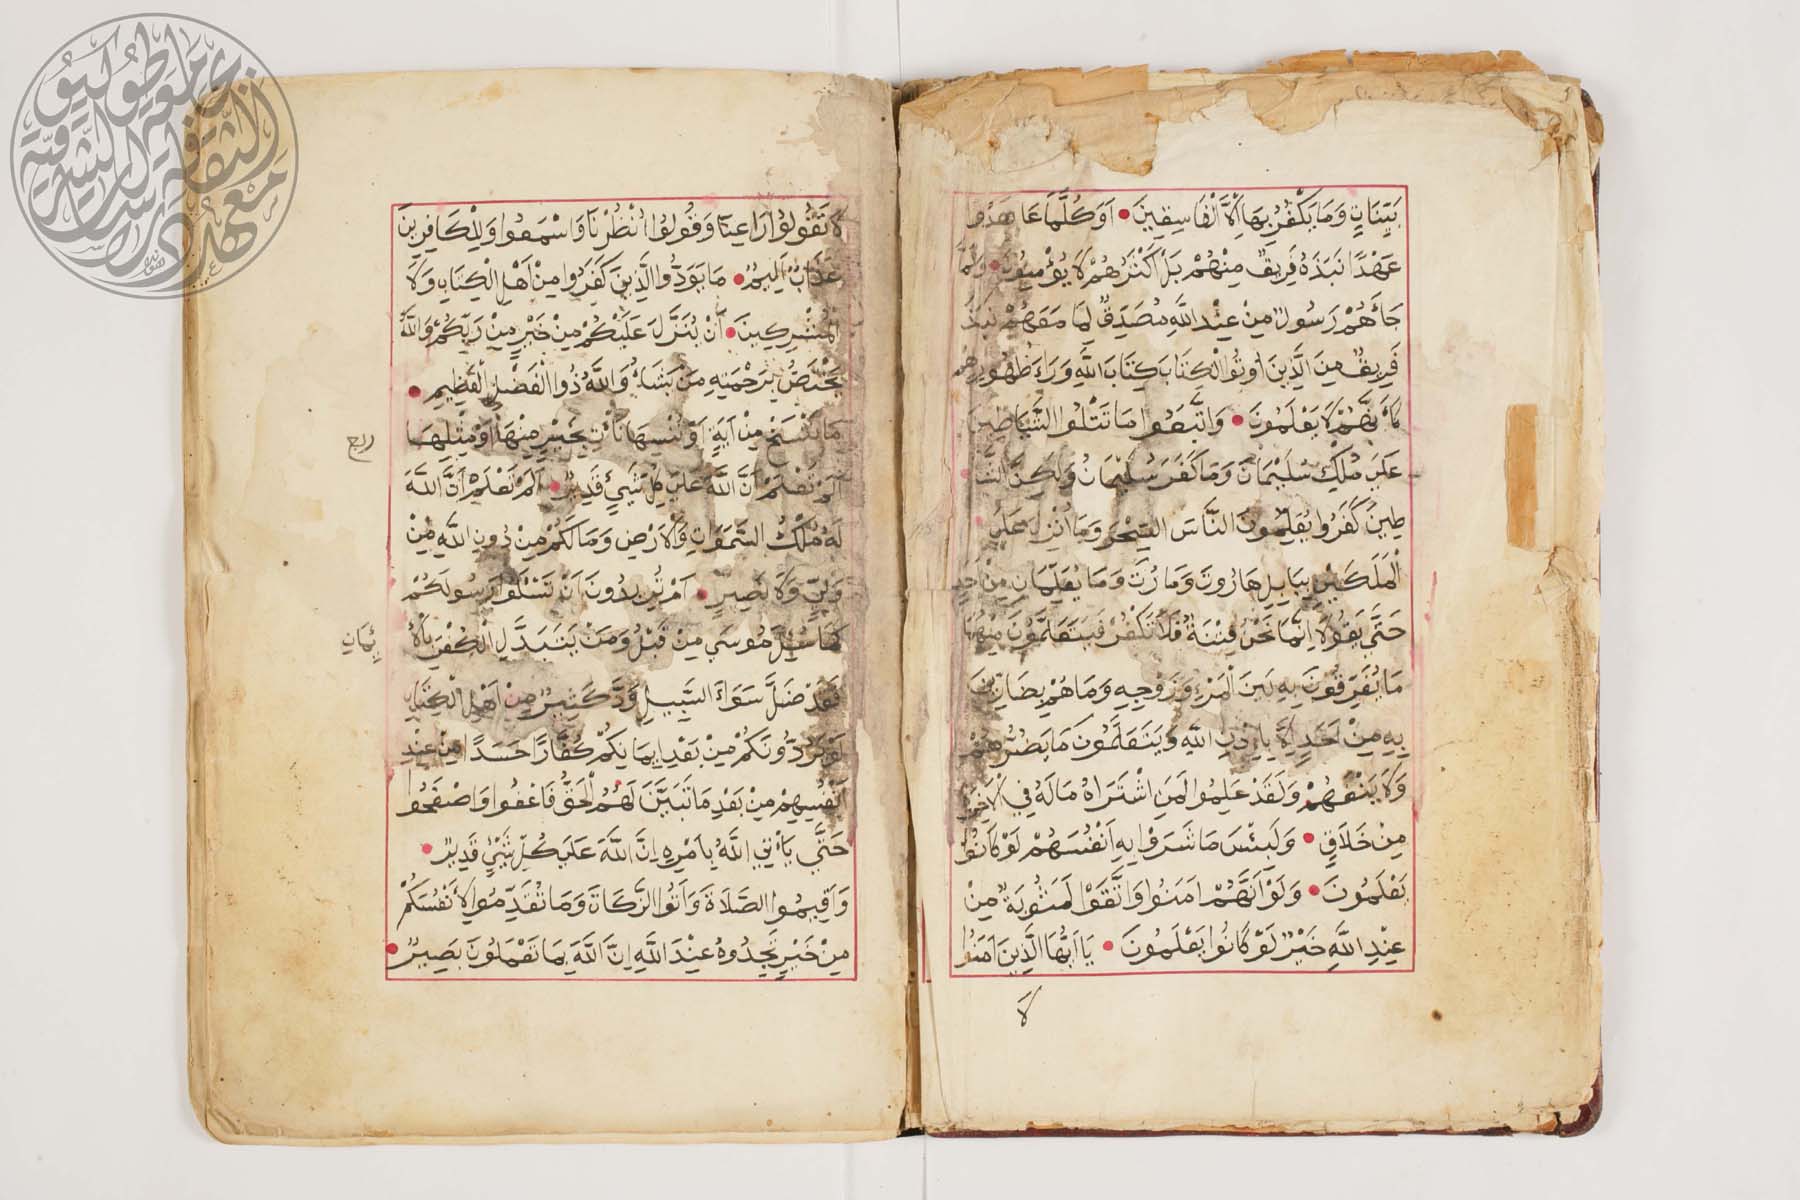 بَيِّنَاتٍ وَمَا يَكْفُرُ بِهَا اِلَّا الْفَاسِقِينَ اَوَكُلَّمَا عَاهَدُوا
عَهْدًا نَبَذَهُ فَرِيقٌ مِنْهُمْ بَلْ اَكْثَرُهُمْ لَا يُؤْمِنُونَ وَلَمَّا
جَاءَهُمْ رَسُولٌ مِنْ عِنْدِ اللَّهِ مُصَدِّقٌ لِمَا مَعَهُمْ نَبَذَ
فَرِيقٌ مِنَ الَّذِينَ اُوتُوا الْكِتَابَ كِتَابَ اللَّهِ وَرَاءَ ظُهُورِهِمْ
كَاَنَّهُمْ لَا يَعْلَمُونَ وَاتَّبَعُوا مَا تَتْلُوا الشَّيَاطِينَ
عَلَى مُلْكِ سُلَيْمَانَ وَمَا كَفَرَ سُلَيْمَانُ وَلَكِنَّ الشَّيَا
طِينَ كَفَرُوا يُعَلِّمُونَ النَّاسَ السِّحْرَ وَمَا اُنْزِلَ عَلَى
الْمَلَكَيْنِ بِبَابِلَ هَارُوتَ وَمَارُتَ وَمَا يُعَلِّمَانِ مِنْ اَحَدٍ
حَتَّى يَقُولَا اِنَّمَا نَحْنُ فِتْنَةٌ فَلَا تَكْفُرْ فَيَتَعَلَّمُونَ مِنْهُمَا
مَا يُفَرِّقُونَ بِهِ بَيْنَ الْمَرْءِ وَزَوْجِهِ وَمَا هُمْ بِضَارِّينَ
بِهِ مِنْ اَحَدٍ اِلَّا بِاِذْنِ اللَّهِ وَيَتَعَلَّمُونَ مَا يَضُرُّهُمْ
وَلَا يَنْفَعُهُمْ وَلَقَدْ عَلِمُوا لَمَنِ اشْتَرَاهُ مَا لَهُ فِي الْاَخِرَةِ
مِنْ خَلَاقٍ وَلَبِئْسَ مَا شَرَوْا بِهِ اَنْفُسَهُمْ لَوْ كَانُوا
يَعْلَمُونَ وَلَوْ اَنَّهُمْ اٰمَنُوا وَاتَّقَوْا لَمَثُوبَةٌ مِنْ
عِنْدِ اللَّهِ خَيْرٌ لَوْ كَانُوا يَعْلَمُونَ يَا اَيُّهَا الَّذِينَ اٰمَنُوا
لَا
لَا تَقُولُوا رَاعِنَا وَقُولُوا انْظُرْنَا وَاسْمَعُوا وَلِلْكَافِرِينَ
عَذَابٌ اَلِيمٌ مَا يَوَدُّ الَّذِينَ كَفَرُوا مِنْ اَهْلِ الْكِتَابِ وَلَا
الْمُشْرِكِينَ اَنْ يُنَزَّلَ عَلَيْكُمْ مِنْ خَيْرٍ مِنْ رَبِّكُمْ وَاللَّهُ
يَخْتَصُّ بِرَحْمَتِهِ مَنْ يَشَاءُ وَاللَّهُ ذُوا الْفَضْلِ الْعَظِيمِ
مَا نَنْسَخْ مِنْ اٰيَةٍ اَوْ نُنْسِهَا نَاْتِ بِخَيْرٍ مِنْهَا اَوْ مِثْلِهَا
ربع
اَلَمْ تَعْلَمْ اَنَّ اللَّهَ عَلَى كُلِّ شَيْءٍ قَدِيرٌ اَلَمْ تَعْلَمْ اَنَّ اللَّهَ
لَهُ مُلْكُ السَّمَوَاتِ وَالْاَرْضِ وَمَا لَكُمْ مِنْ دُونِ اللَّهِ مِنْ
وَلِيٍّ وَلَا نَصِيرٍ اَمْ تُرِيدُونَ اَنْ تَسْئَلُوا رَسُولَكُمْ
كَمَا سُئِلَ مُوسَى مِنْ قَبْلُ وَمَنْ يَتَبَدَّلِ الْكُفْرَ بِالْا
يمَانِ
فَقَدْ ضَلَّ سَوَاءَ السَّبِيلِ وَدَّ كَثِيرٌ مِنْ اَهْلِ الْكِتَابِ
لَوْ يَرُدُّونَكُمْ مِنْ بَعْدِ اِيمَانِكُمْ كُفَّارًا حَسَدًا مِنْ عِنْدِ
اَنْفُسِهِمْ مِنْ بَعْدِ مَا تَبَيَّنَ لَهُمُ الْحَقُّ فَاعْفُوا وَاصْفَحُوا
حَتَّى يَاْتِيَ اللَّهُ بِاَمْرِهِ اِنَّ اللَّهَ عَلَى كُلِّ شَيْءٍ قَدِيرٌ
وَاَقِيمُوا الصَّلَاةَ وَاٰتُوا الزَّكَاةَ وَمَا تُقَدِّمُوا لِاَنْفُسِكُمْ
مِنْ خَيْرٍ تَجِدُوهُ عِنْدَ اللَّهِ اِنَّ اللَّهَ بِمَا تَعْمَلُونَ بَصِيرٌ